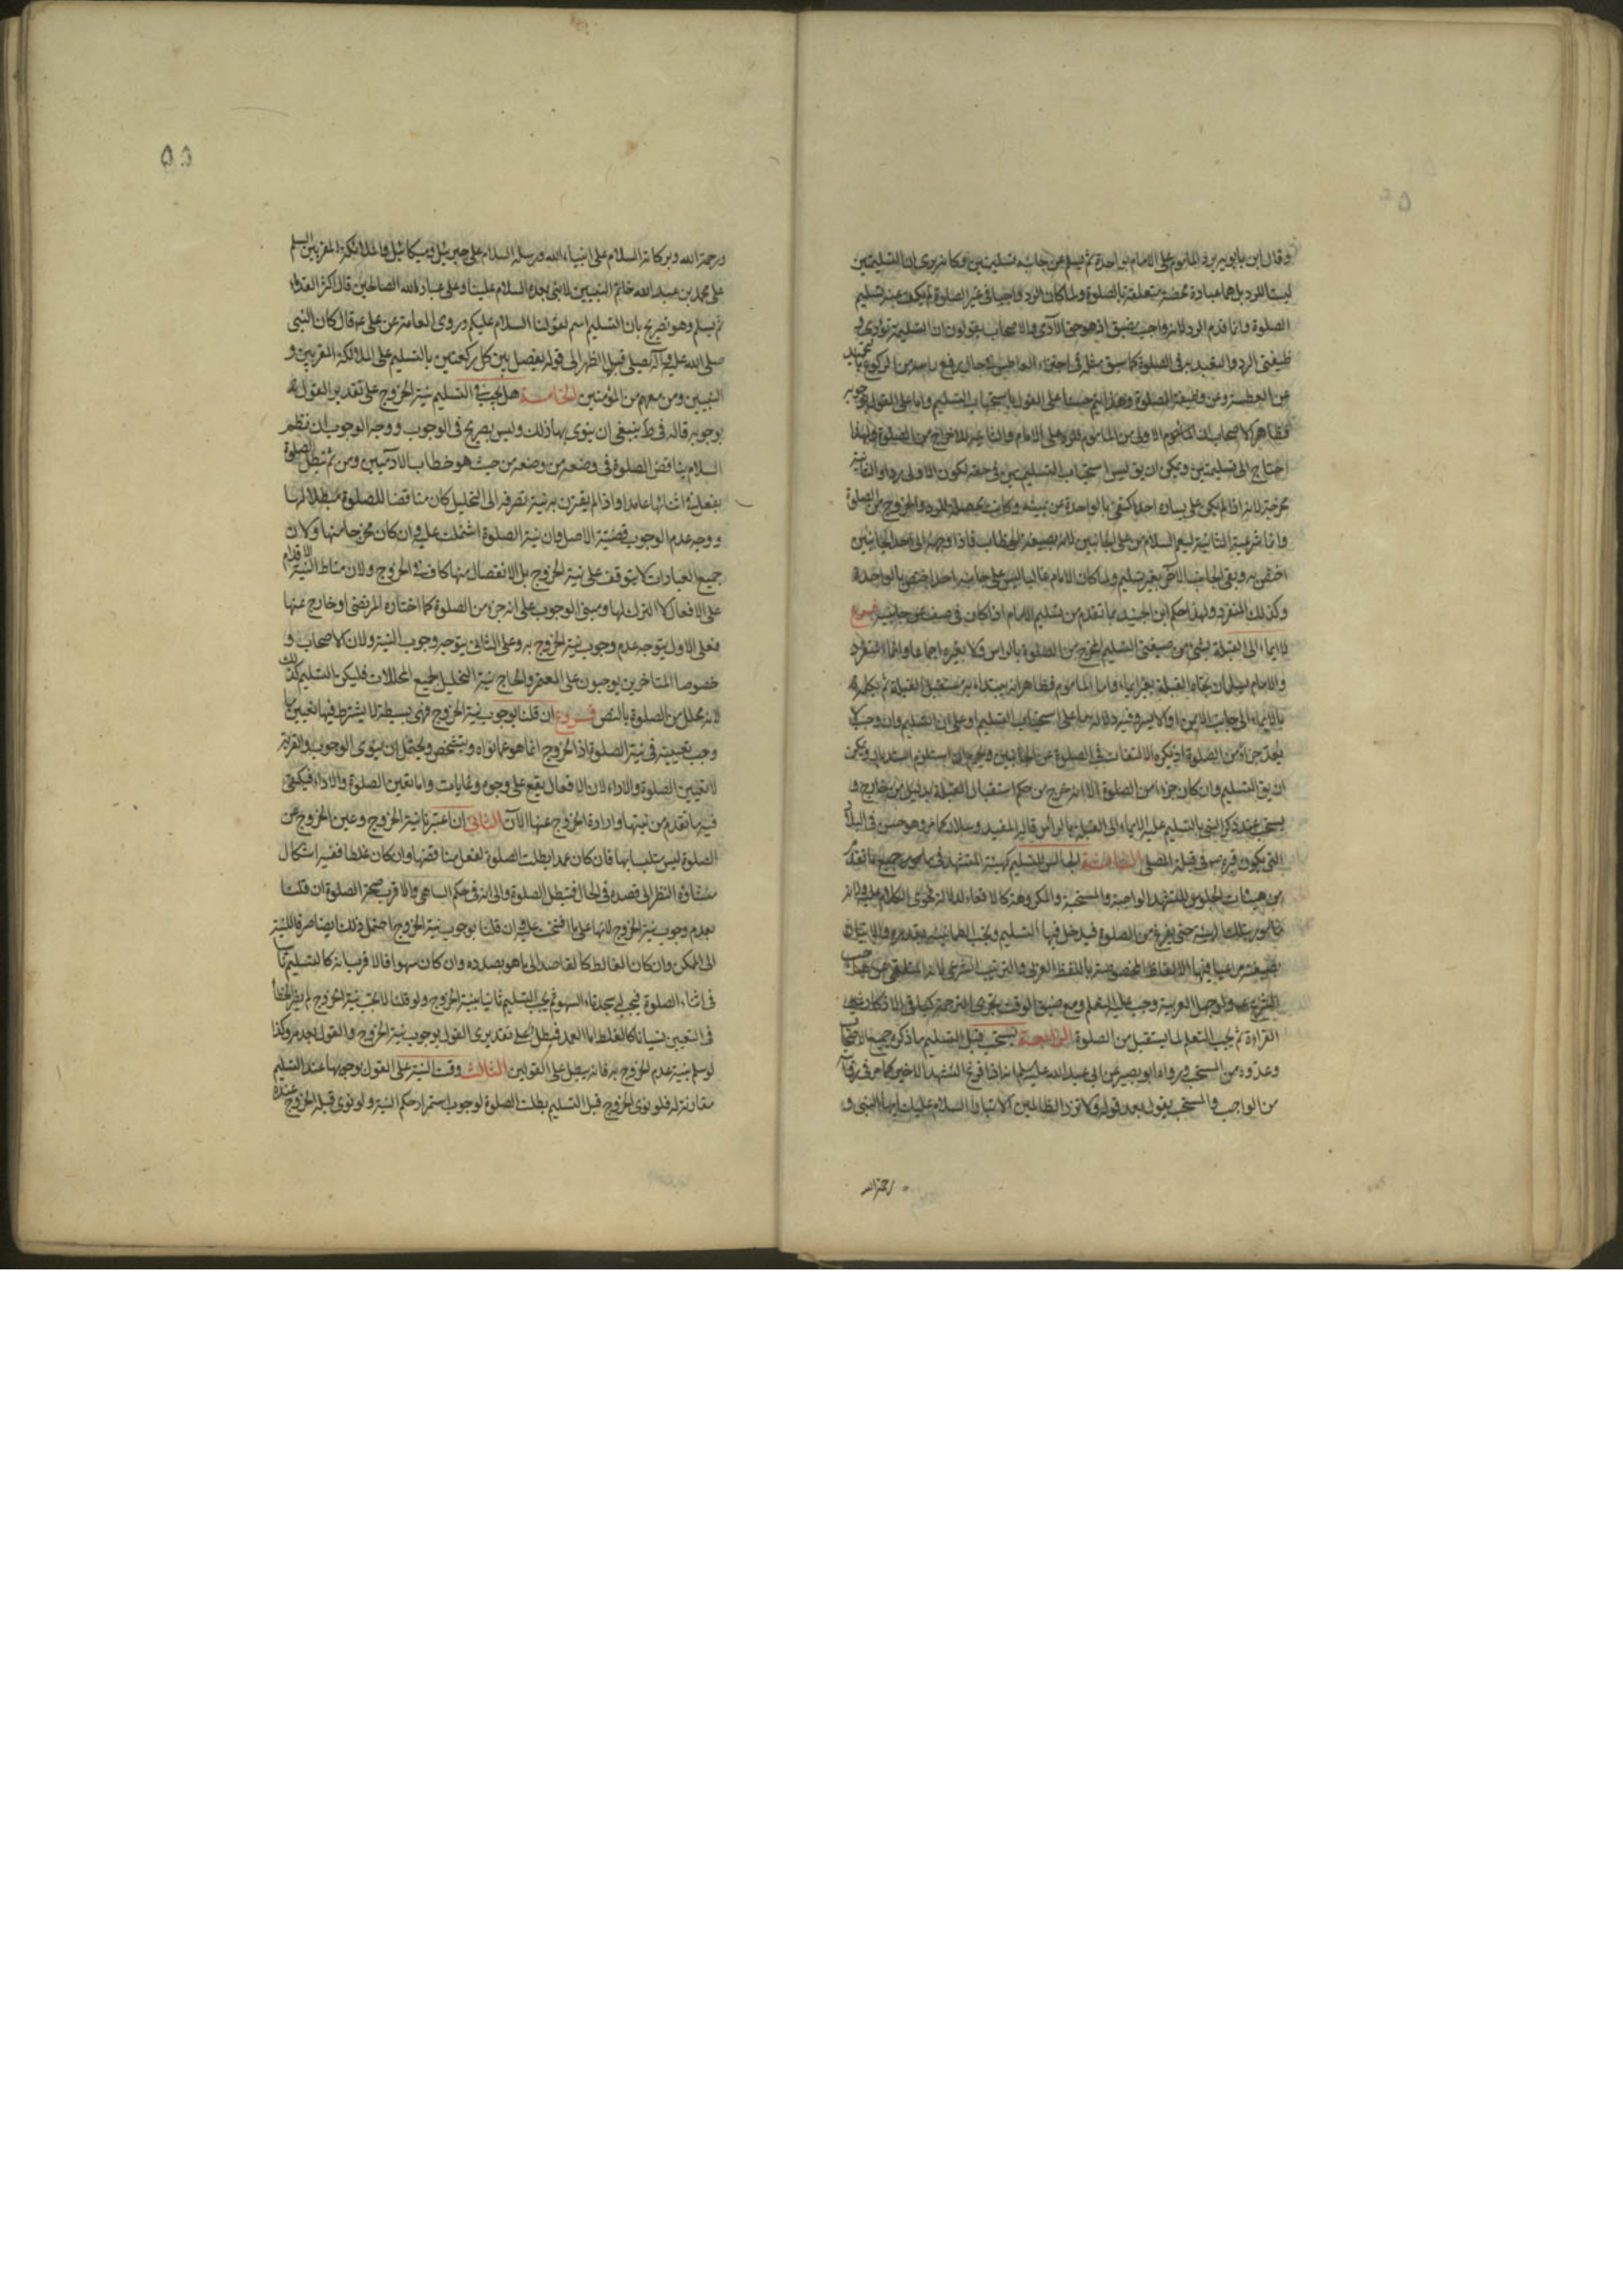 وقال ابن بابويه يرد المأموم على الامام بواحدة ثم يسلم عن جانبيه تسليمتين وكانه يرى ان التسليمتين
ليستا للرد بل هما عبادة محضة متعلقة بالصلوة ولما كان الرد واجبا في غير الصلوة لم يكف عنه تسليم
الصلوة وانما قدم الرد لانه واجب مضيق اذ هو حق الآدمي والاصحاب يقولون ان التسليمة تؤدي
وظيفتي الرد والتعبد به في الصلوة كما سبق مثله في اجتزاء العاطس في حال رفع راسه من الركوع بالتحميد
عن العطسة وعن وظيفة الصلوة وهذا يتم حسنا على القول باستحباب التسليم واما على القول بوجوبه
فظاهر الاصحاب ان الاولى من المأموم للرد على الامام والثانية للاخراج من الصلوة ولهذا
احتاج الى تسليمتين ويمكن ان يق ليس استحباب التسليمتين في حقه لكون الاولى ردا والثانية
مخرجة لانه اذا لم يكن على يساره احد اكتفى بالواحدة عن يمينه وكانت محصلة للرد والخروج من الصلوة
وانما شرعية الثانية ليعم السلام من على الجانبين لانه بصيغة الخطاب فاذا وجهه الى احد الجانبين
اختص به وبقي الجانب الآخر بغير تسليم ولما كان الامام غالبا ليس على جانبيه احد اختص بالواحدة
وكذلك المنفرد ولهذا حكم ابن الجنيد بما تقدم من تسليم الامام اذا كان في صف عن جانبيه فروع
لا ايماء الى القبلة بشيء من صيغتي التسليم المخرج من الصلوة بالراس ولا بغيره اجماعا وانما المنفرد
والامام يسلمان تجاه القبلة بغير ايماء واما المأموم فظاهر انه يبتداء به مستقبل القبلة ثم يكمله
بالايماء الى جانب الايمن او الايسر وفيه دلالة ما على استحباب التسليم او على ان التسليم وان وجب لا
يعد جزءا من الصلوة اذ يكره الالتفات في الصلوة عن الجانبين ويحرم ان استلزم استدبارا ويمكن
ان يق التسليم وان كان جزءا من الصلوة الا انه خرج من حكم استقبال القبلة بدليل من خارج و
يستحب عند ذكر النبي بالتسليم عليه الايماء الى القبلة بالراس قاله المفيد وسلار كما مر وهو حسن في البلاد
التي يكون قبره ص في قبلة المصلي الجالس للتسليم كهيئة المتشهد في جميع ما تقدم
من هيئات الجلوس للتشهد الواجبة والمستحبة والمكروهة كالاقعاء لدلالة فحوى الكلام عليه ولانه
مأمور بتلك الهيئة حتى يفرغ من الصلوة فيدخل فيها التسليم ويجب الطمأنينة بقدره والاتيان
بصيغته من صيغتها الالفاظ المخصوصة باللفظ العربي والترتيب الشرعي لانه المتلقى عن صاحب
الشرع ص ولو جهل العربية وجب عليه التعلم ومع ضيق الوقت يجزي الترجمة كما في الاذكار غير
القراءة ثم يجب التعلم لما يستقبل من الصلوة الرابعة يستحب قبل التسليم ما ذكره جميع الاصحاب
وعدوه من المستحب ورواه ابو بصير عن ابي عبد الله عليه السلم انه اذا فرغ التشهد الاخير كما مر في روايته
من الواجب والمستحب يقول بعد قوله ولا تزد الظالمين الا تبارا السلام عليك ايها النبي و
رحمة الله
٥٥
ورحمة الله وبركاته السلام على انبياء الله ورسله السلام على جبريئل وميكائيل والملائكة المقربين السلم
على محمد بن عبد الله خاتم النبيين لا نبي بعده السلام علينا وعلى عباد الله الصالحين قال اكثر القدماء
ثم يسلم وهو تصريح بان التسليم اسم لقولنا السلام عليكم وروى العامة عن علي ع قال كان النبي
صلى الله عليه وآله يصلي قبل الظهر الى قوله يفصل بين كل ركعتين بالتسليم على الملائكة المقربين و
النبيين ومن معهم من المؤمنين الخامسة هل يجب في التسليم نية الخروج على تقدير القول به
بوجوبه قاله في ط ينبغي ان ينوي بها ذلك وليس بصريح في الوجوب ووجه الوجوب ان نظم
السلام يناقض الصلوة في وضعه من حيث هو خطاب للآدميين ومن ثم تبطل الصلوة
بفعله في اثنائها عامدا واذا لم يقترن به نية تصرفه الى التحليل كان مناقضا للصلوة مبطلا لها
ووجه عدم الوجوب قضية الاصل وان نية الصلوة اشتملت عليه وان كان مخرجا منها ولان
جميع العبادات لا يتوقف على نية الخروج بل الانفصال منها كاف في الخروج ولان مناط النية الاقدام
على الافعال لا الترك لها ومبنى الوجوب على انه جزء من الصلوة كما اختاره المرتضى او خارج عنها
فعلى الاول يتوجه عدم وجوب نية الخروج به وعلى الثاني يتوجه وجوب النية ولان الاصحاب و
خصوصا المتاخرين يوجبون على المعتمر والحاج نية التحليل لجميع المحللات فليكن التسليم كذلك
لانه محلل من الصلوة بالنص فروع ان قلنا بوجوب نية الخروج فهي بسيطة لا يشترط فيها تعيين ما
وجب تعيينه في نية الصلوة اذ الخروج انما هو عما نواه وتشخص ويحتمل ان ينوي الوجوب والقربة
لا تعيين الصلوة والاداء لان الافعال يقع على وجوه وغايات واما تعين الصلوة والاداء فيكفي
فيه ما تقدم من نيتها وارادة الخروج عنها الآن الثاني ان اعتبرنا نية الخروج وعين الخروج عن
الصلوة ليس متلبسا بها فان كان عمدا بطلت الصلوة لفعل مناقضها وان كان غلطا ففيه اشكال
منشاؤه النظر الى قصده في الحال فتبطل الصلوة والى انه في حكم الساهي والاقرب صحة الصلوة ان قلنا
بعدم وجوب نية الخروج لانها على ما افتتحت عليه وان قلنا بوجوب نية الخروج احتمل ذلك ايضا صرفا للنية
الى الممكن وان كان الغالط كالقاصد الى ما هو بصدده وان كان سهوا فالاقرب انه كالتسليم ناسيا
في اثناء الصلوة فيجب له سجدتا السهو ثم يجب التسليم ثانيا بنية الخروج ولو قلنا لا يجب نية الخروج لم يضر الخطأ
في التعيين نسيانا كالغلط اما العمد فمبطل على تقديري القول بوجوب نية الخروج والقول بعدمه وكذا
لو سلم بنية عدم الخروج به فانه يبطل على القولين الثالث وقت النية على القول بوجوبها عند التسليم
مقارنة له فلو نوى الخروج قبل التسليم بطلت الصلوة لوجوب استمرار حكم النية ولو نوى قبله الخروج عنده